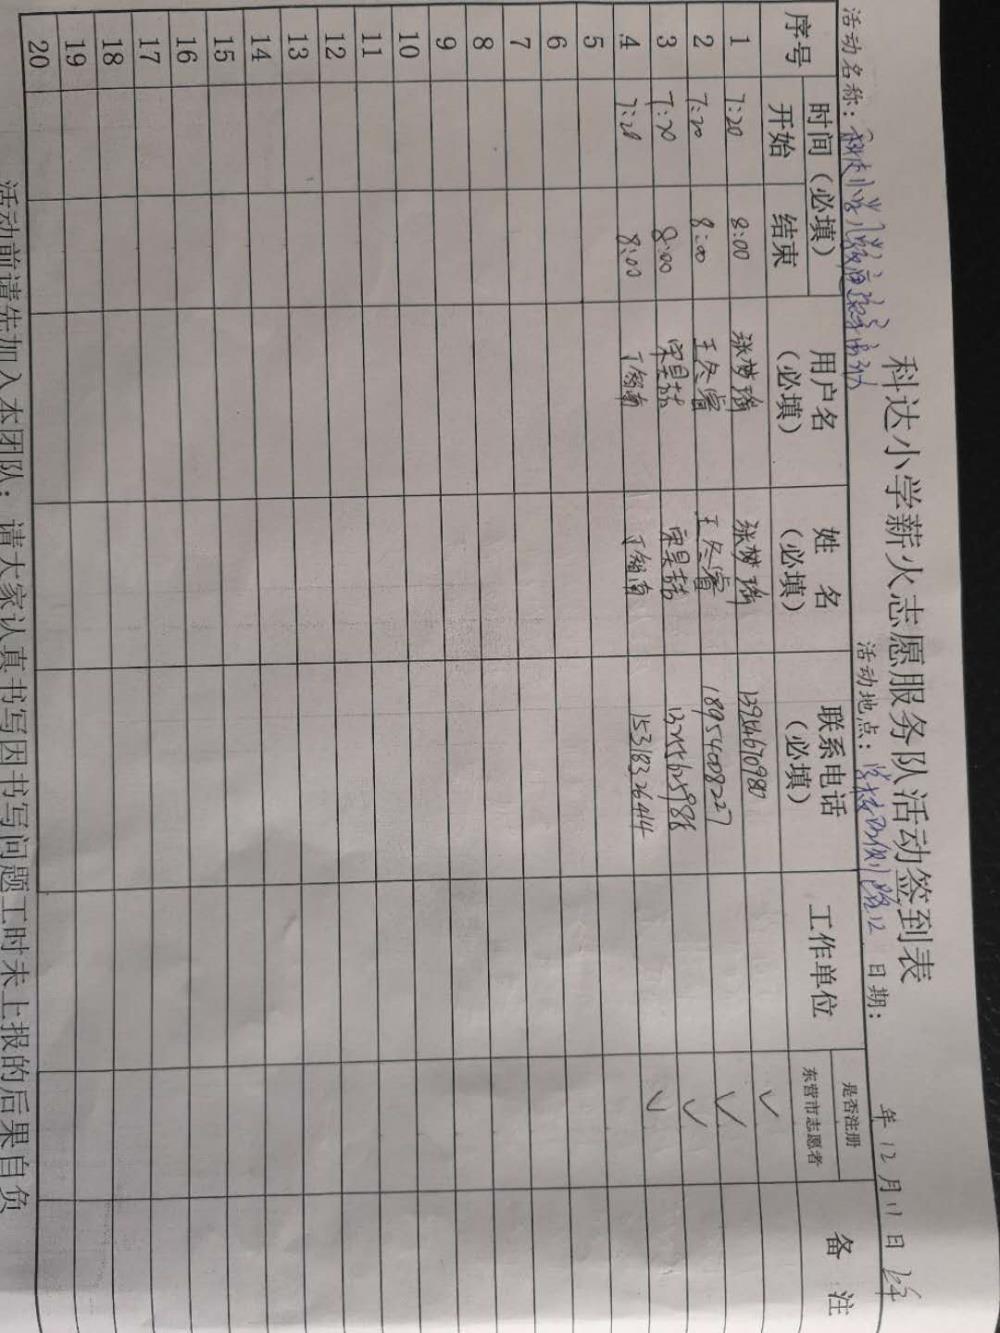 科达小学薪火志愿服务队活动签到表
活动名称：科达小学 活动地点：学校西侧路口 日期： 年12月11日上午
序号 时间（必填） 用户名（必填） 姓名（必填） 联系电话（必填） 工作单位 是否注册东营市志愿者 备注
开始 结束
1 7:20 8:00 张梦瑶 张梦瑶
2 7:20 8:00 王冬睿 王冬睿 18954008227
3 7:20 8:00 宋昊喆 宋昊喆
4 7:20 8:00 15318326414
5
6
7
8
9
10
11
12
13
14
15
16
17
18
19
20
活动前请先加入本团队；请大家认真书写因书写问题工时未上报的后果自负